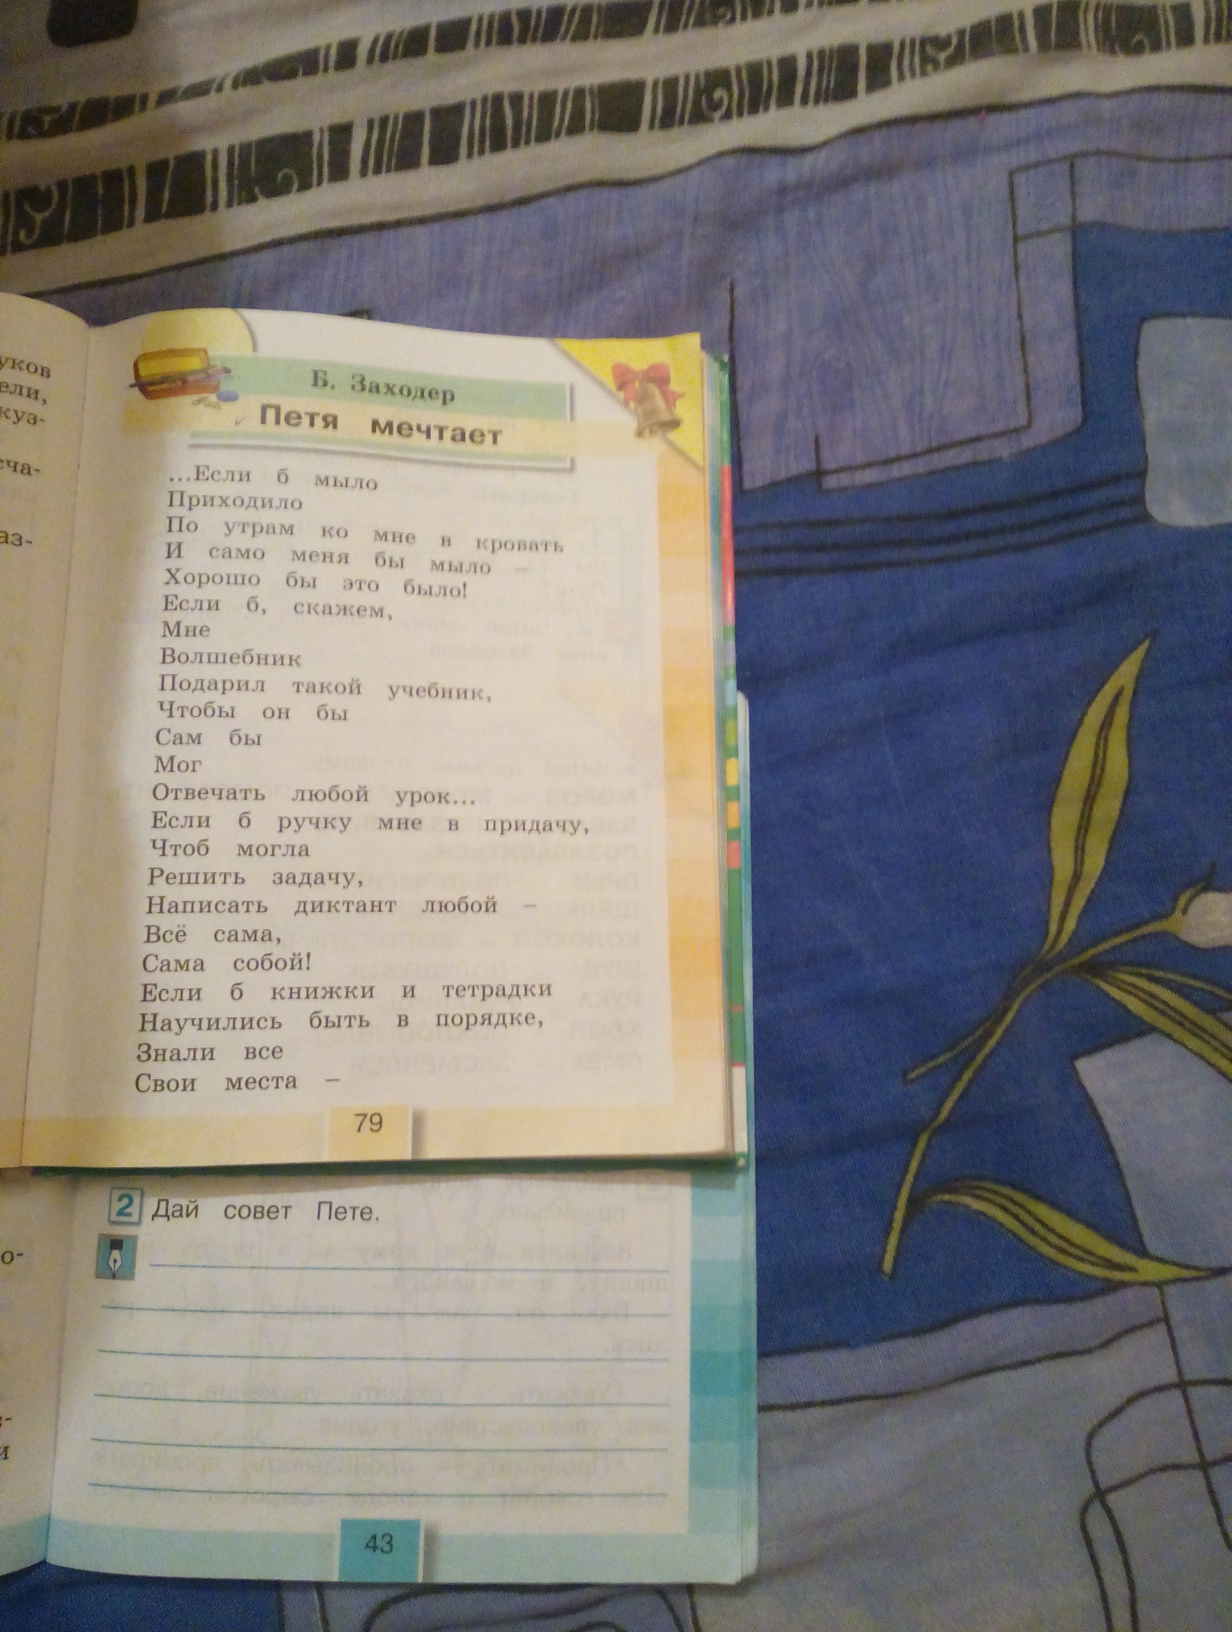 уков
ели,
куз-
ча-
аз-
Б. Заходер
Петя мечтает
...Если б мыло
Приходило
По утрам ко мне в кровать
И само меня бы мыло –
Хорошо бы это было!
Если б, скажем,
Мне
Волшебник
Подарил такой учебник,
Чтобы он бы
Сам бы
Мог
Отвечать любой урок...
Если б ручку мне в придачу,
Чтоб могла
Решить задачу,
Написать диктант любой –
Всё сама,
Сама собой!
Если б книжки и тетрадки
Научились быть в порядке,
Знали все
Свои места –
79
2 Дай совет Пете.
о-
и
43